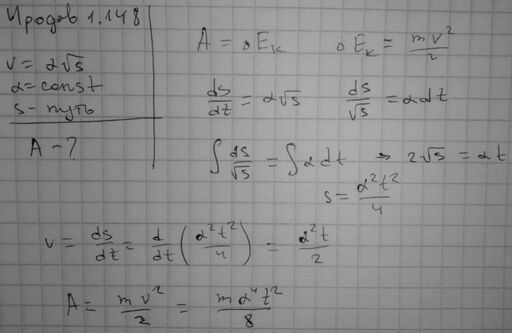 Иродов 1.148
v = α√s
α = const
s – путь
A – ?
A = △E_k   △E_k = mv²/2
ds/dt = α√s   ds/√s = αdt
∫ ds/√s = ∫ α dt → 2√s = αt
s = α²t²/4
v = ds/dt = d/dt (α²t²/4) = α²t/2
A = mv²/2 = mα⁴t²/8